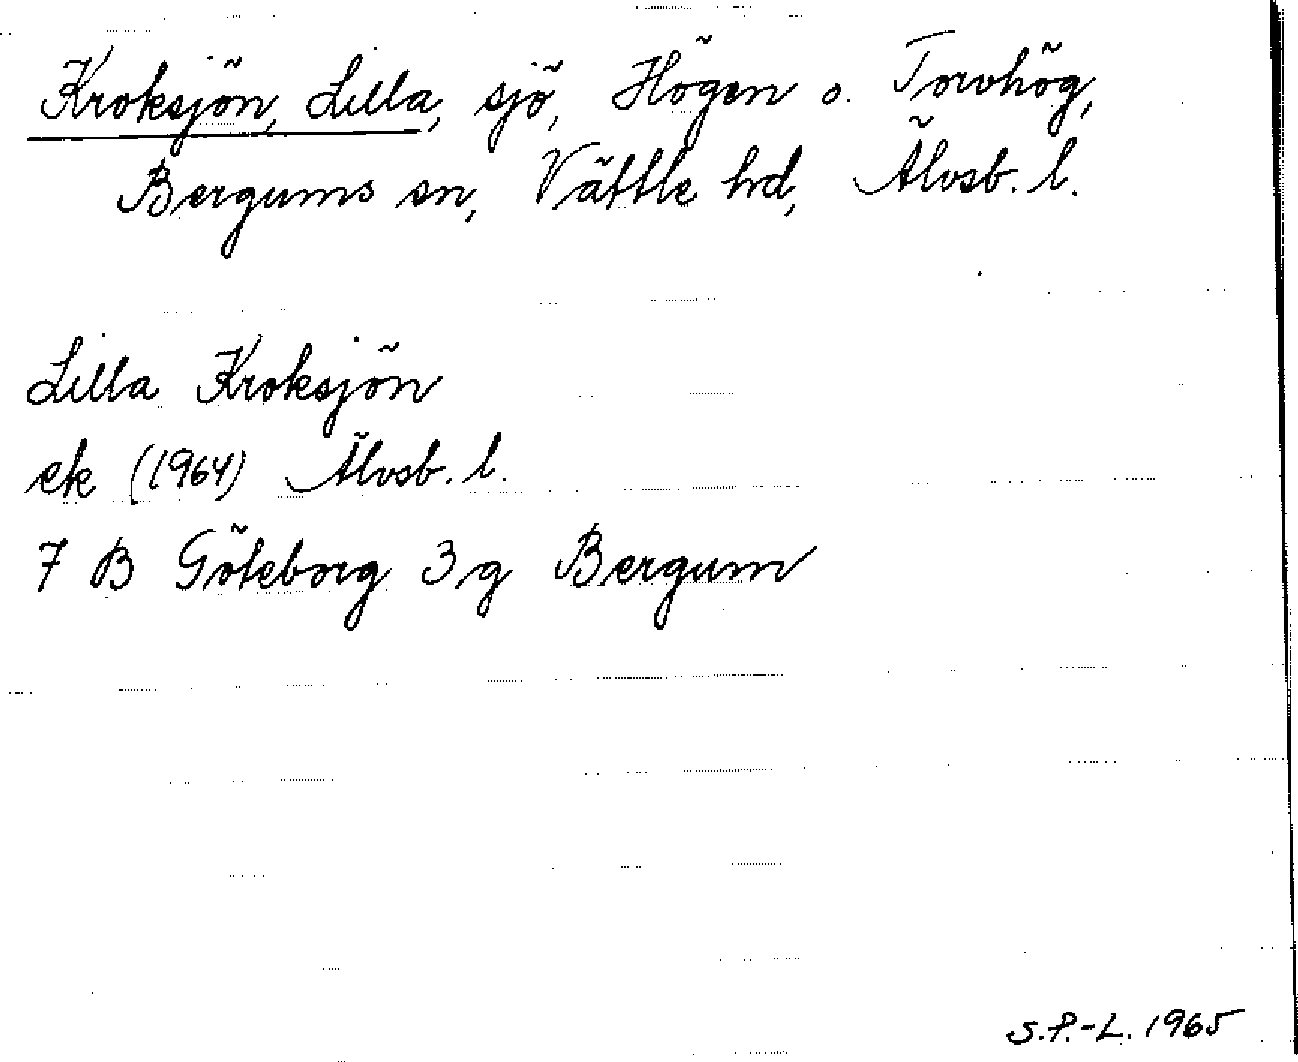 Kroksjön, Lilla, sjö, Högen o. Torvhög,
Bergums sn, Vättle hd, Älvsb. l.
Lilla Kroksjön
ek (1964) Älvsb. l.
7 B Göteborg 3 g Bergum
S.P.-L. 1965